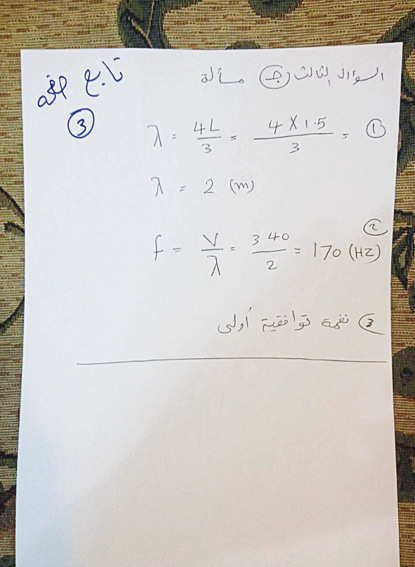 تابع صفحة
③
السؤال الثالث (ج) مسألة
λ = 4L/3 = 4 X 1.5/3 = ①
λ = 2 (m)
②
f = V/λ = 340/2 = 170 (HZ)
③ نغمة توافقية أولى